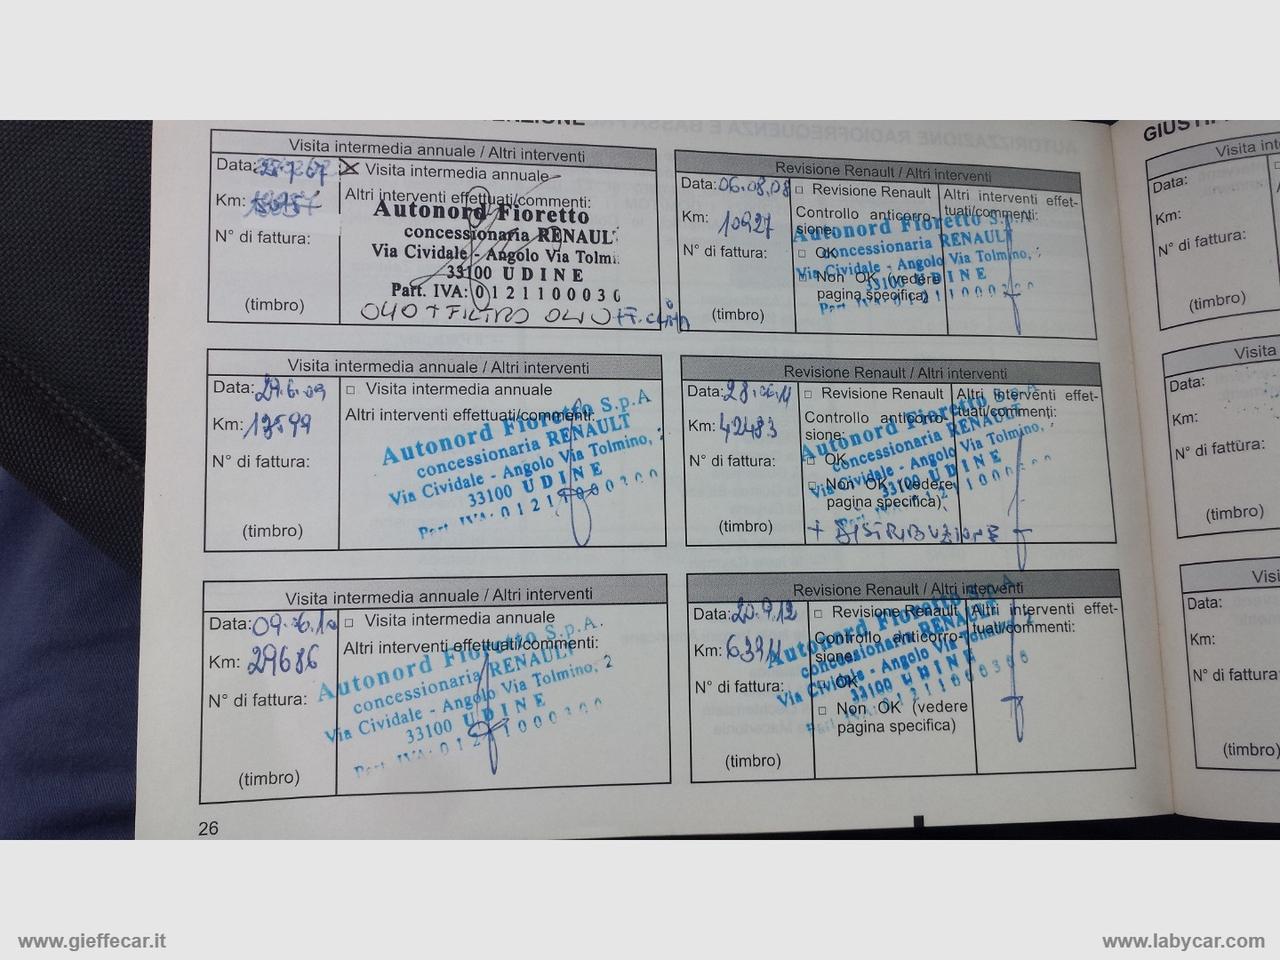 GIUSTIF
Visita intermedia annuale / Altri interventi
Data: 25.7.07 Visita intermedia annuale
Km:
Altri interventi effettuati/commenti:
N° di fattura:
Autonord Fioretto
concessionaria RENAUL
Via Cividale - Angolo Via Tolmi
33100 UDINE
Part. IVA: 0121100030
(timbro)
OLIO + FILTRO OLIO + F.
Revisione Renault / Altri interventi
Data: 06.08.08 Revisione Renault
Altri interventi effet-
tuati/commenti:
Km: 10927
Controllo anticorro-
sione:
N° di fattura:
OK
Non OK (vedere
pagina specifica)
Autonord Fioretto S.p.A
concessionaria RENAULT
Via Cividale - Angolo Via Tolmino,
33100 UDINE
(timbro)
Visita intermedia annuale / Altri interventi
Data: 29.6.09 Visita intermedia annuale
Km:
Altri interventi effettuati/commenti:
N° di fattura:
Autonord Fioretto S.p.A
concessionaria RENAULT
Via Cividale - Angolo Via Tolmino,
33100 UDINE
(timbro)
Revisione Renault / Altri interventi
Data: 28.06.11 Revisione Renault
Altri interventi effet-
tuati/commenti:
Km: 42483
Controllo anticorro-
sione:
N° di fattura:
OK
Non OK (vedere
pagina specifica)
Autonord Fioretto S.p.A
concessionaria RENAULT
Via Cividale - Angolo Via Tolmino,
33100 UDINE
(timbro)
+ DISTRIBUZIONE
Visita intermedia annuale / Altri interventi
Data: 09.06.10 Visita intermedia annuale
Km: 29686
Altri interventi effettuati/commenti:
N° di fattura:
Autonord Fioretto S.p.A.
concessionaria RENAULT
Via Cividale - Angolo Via Tolmino, 2
33100 UDINE
(timbro)
Revisione Renault / Altri interventi
Data: 20.9.12 Revisione Renault
Altri interventi effet-
tuati/commenti:
Km:
Controllo anticorro-
sione:
N° di fattura:
OK
Non OK (vedere
pagina specifica)
Autonord Fioretto S.p.A
concessionaria RENAULT
Via Cividale - Angolo Via Tolmino, 2
33100 UDINE
(timbro)
26
Visita int
Data:
Km:
N° di fattura:
(timbro)
Visita
Data:
Km:
N° di fattura:
(timbro)
Visi
Data:
Km:
N° di fattura
(timbro)
www.gieffecar.it
www.labycar.com